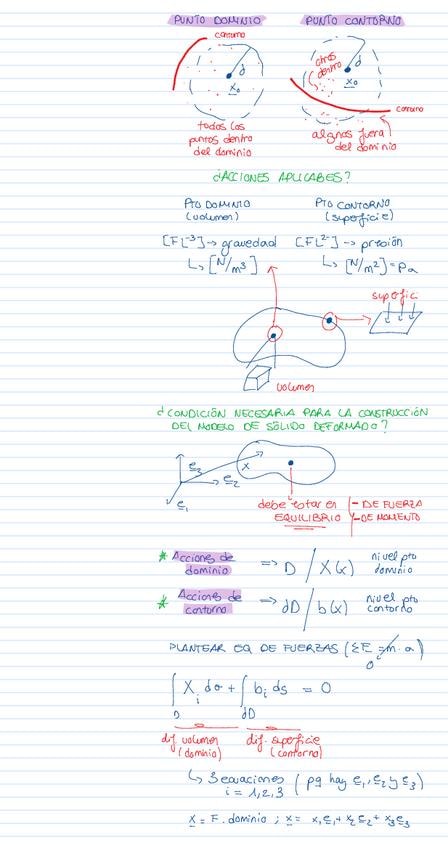 PUNTO DOMINIO PUNTO CONTORNO
contorno
d
x₀
todos los
puntos dentro
del dominio
otros
dentro
d
x₀
contorno
algunos fuera
del dominio
¿ACCIONES APLICABLES?
PTO DOMINIO
(volumen)
PTO CONTORNO
(superficie)
[FL⁻³] → gravedad
↳ [N/m³]
[FL²⁻] → presión
↳ [N/m²] = Pa
superfici
volumen
¿CONDICIÓN NECESARIA PARA LA CONSTRUCCIÓN
DEL MODELO DE SÓLIDO DEFORMADO?
e₃
x
e₂
e₁
debe estar en
EQUILIBRIO
- DE FUERZA
- DE MOMENTO
* Acciones de
dominio
=> D / X(x) nivel pto
dominio
* Acciones de
contorno
=> dD / b(x) nivel pto
contorno
PLANTEAR EQ DE FUERZAS (ΣF = m·a)
0
∫ Xᵢ dσ + ∫ bᵢ ds = 0
D dD
dif. volumen
(dominio)
dif. superficie
(contorno)
↳ 3 ecuaciones (pq hay e₁, e₂ y e₃)
i = 1,2,3
X = F. dominio ; x = x₁e₁ + x₂e₂ + x₃e₃